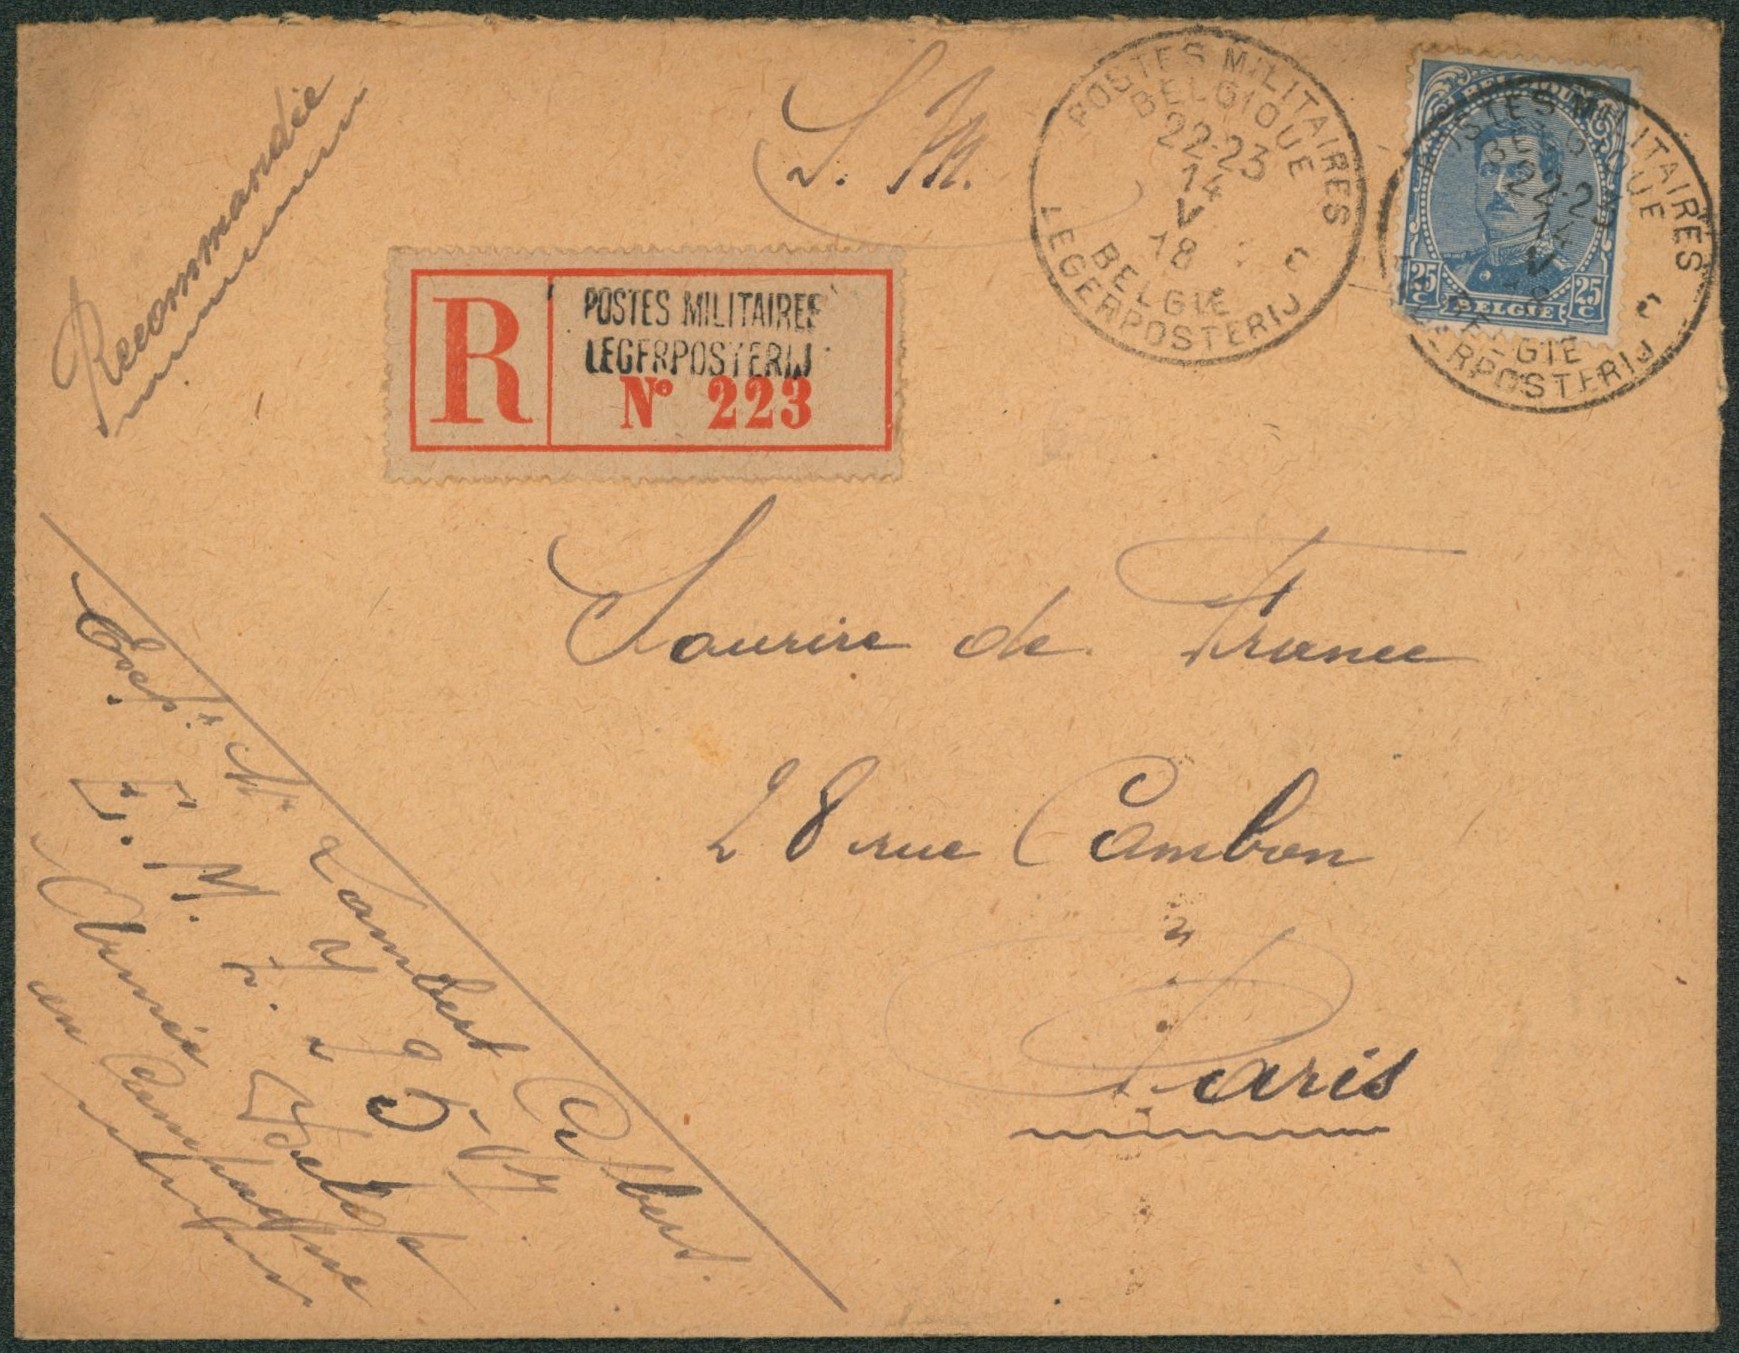 Recommandée
S. M.
POSTES MILITAIRES
BELGIQUE
22-23
14
V
18
BELGIE
LEGERPOSTERIJ
POSTES MILITAIRES
BELGIQUE
22-23
14
V
18
BELGIE
LEGERPOSTERIJ
25 c
BELGIE
25 c
R
POSTES MILITAIRES
LEGERPOSTERIJ
N° 223
Sourire de France
28 rue Cambon
Paris
Lambert Albert.
E. M.
Armée Belge
en Campagne